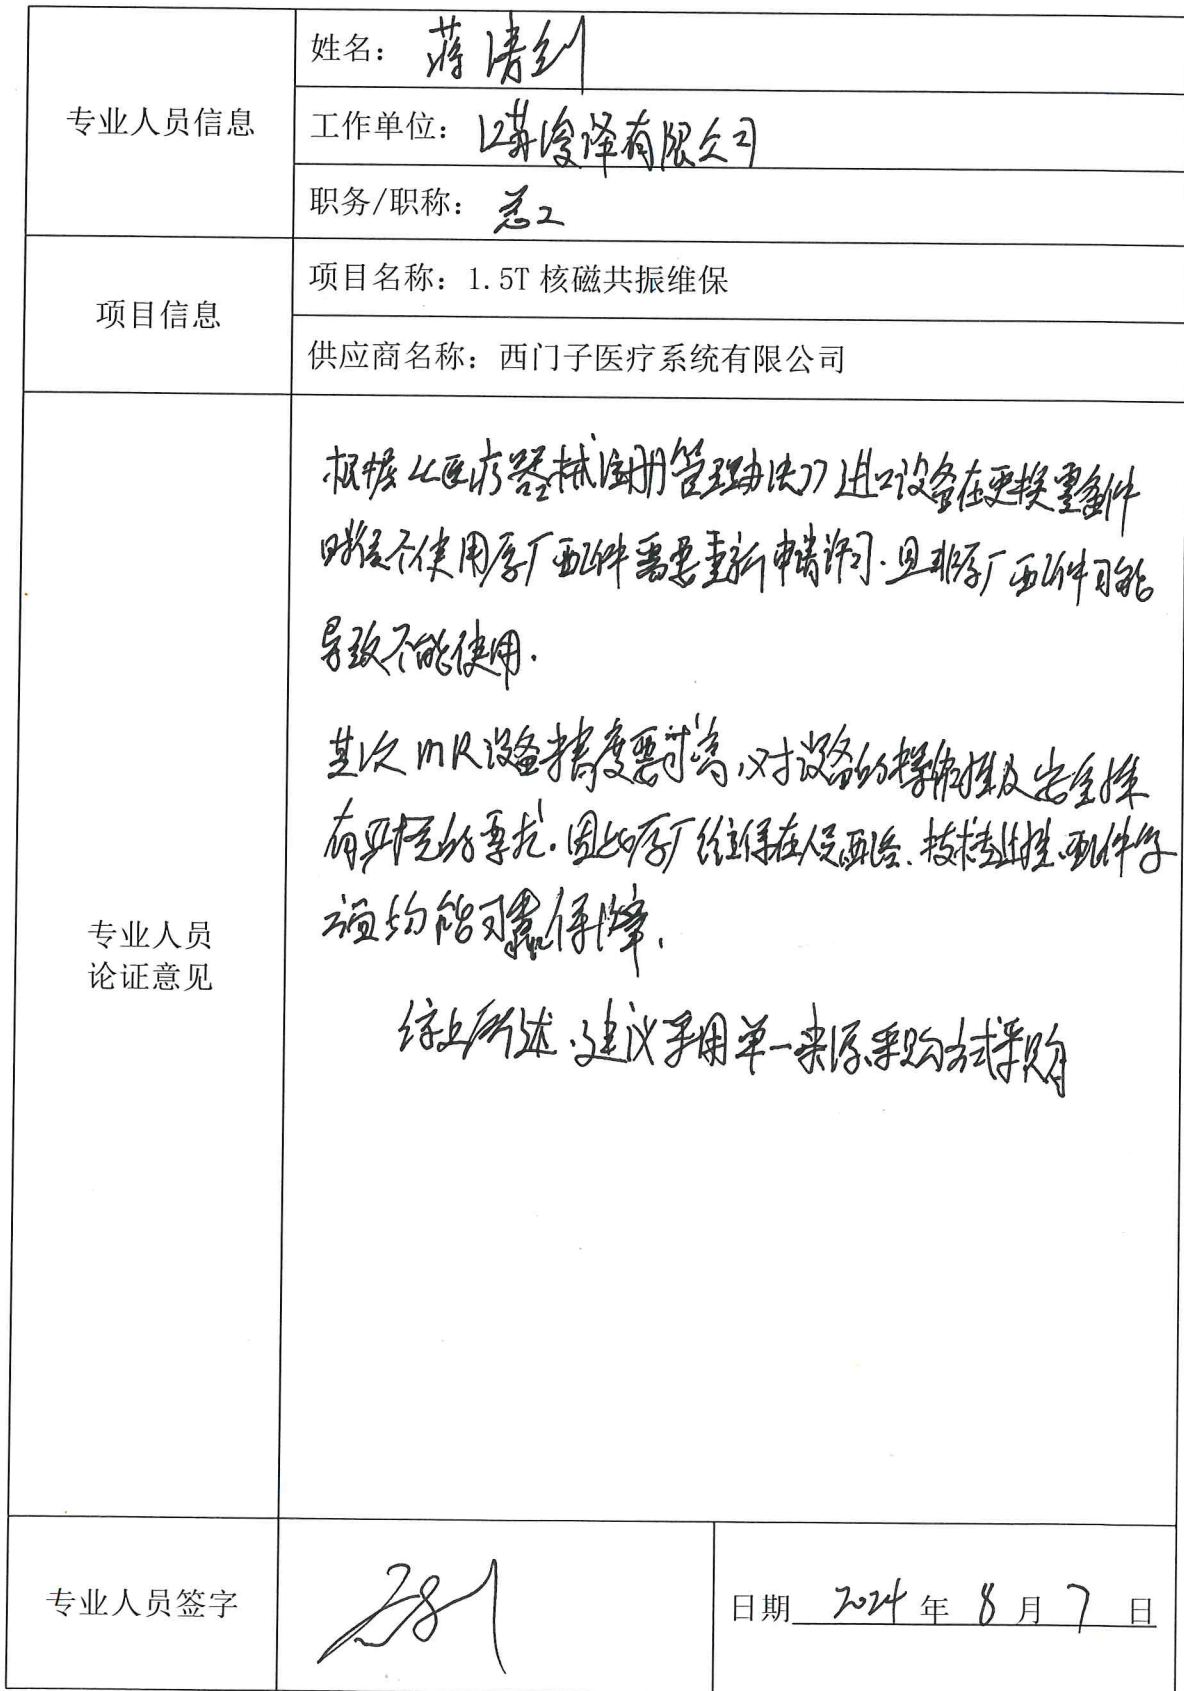 专业人员信息
姓名：蒋清
工作单位：江苏俊泽有限公司
职务/职称：总工
项目信息
项目名称：1.5T 核磁共振维保
供应商名称：西门子医疗系统有限公司
专业人员
论证意见
根据《医疗器械注册管理办法》进口设备在更换零备件
时候不使用原厂配件需要重新申请许可.且非原厂配件可能
导致不能使用.
其次MR设备精度要求高,对设备的操作性及安全性
有严格的要求.因此原厂维保在人员配给.技术专业性.配件等
方面均能可靠保障.
综上所述.建议采用单一来源采购方式采购
专业人员签字
日期 2024 年 8 月 7 日